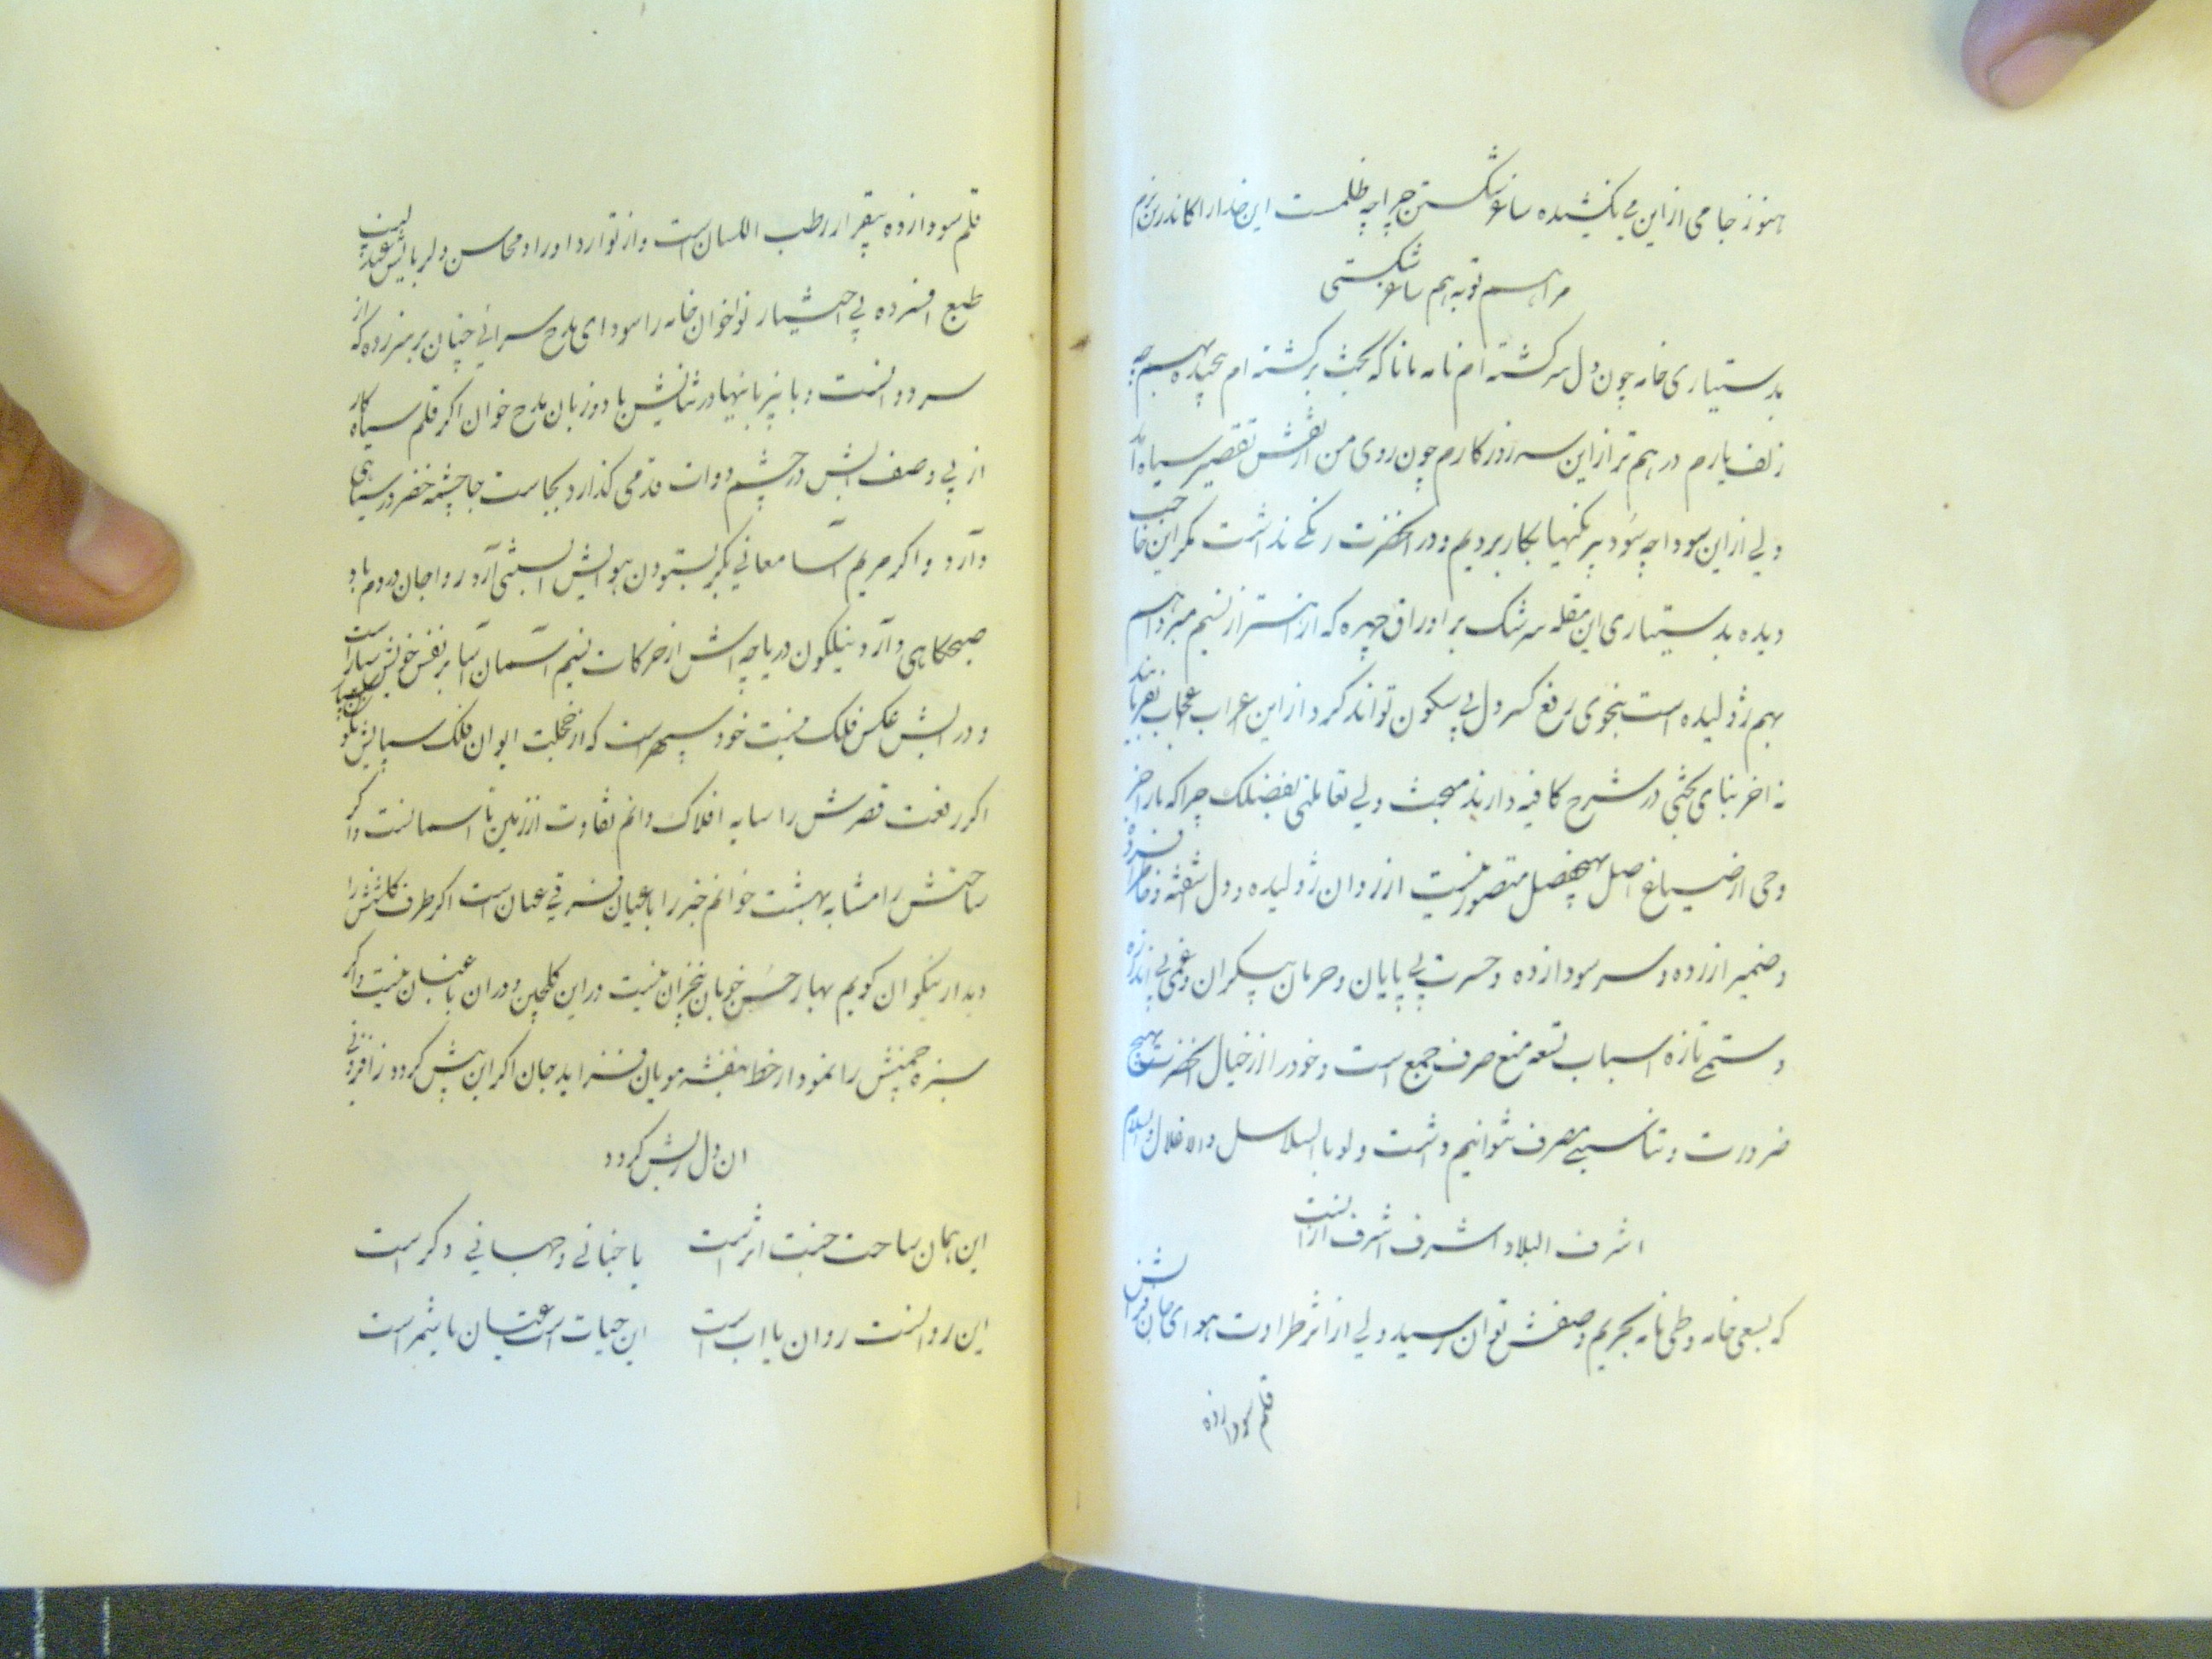 هنوز جامی از این می نکشیده ساغر شکستن چرا چه ظلمست این خدا را کاندرین بزم
مرا هم توبه هم ساغر شکستی
بدستیاری خامه چون دل سرکشته ام نامه مانا که بخت برکشته ام بچید بهم چه
زلف یارم درهم تر از این سه روزکارم چون روی من از نقش تقصیر سیاه
ولی از این سودا چه سود نیرنکها بکار بردیم و در انحضرت رنکی نداشت مکر این
دیده بدستیاری این مقله سرشک بر اوراق چهره که از اهتزاز نسیم
بهم ژولیده است بنحوی رفع کسر دل بی سکون تواند کرد و از این
نه اخر بنای بحثی در شرح کافیه دارند مبحث ولی تعاملنی بفضلک چرا که بار اخر
وحی از اصل متصور نیست از روان ژولیده و دل شفته و خاطر
و ضمیر ازرده و سر سودا زده و حسرت بی پایان و حرمان بیکران و غمی بی اندازه
و ستمی تازه اسباب تسعه منع صرف جمع است و خود را از خیال انحضرت بهیچ
ضرورت و تناسبی منصرف نتوانیم داشت و لو بالسلاسل والاغلال والسلام
اشرف البلاد اشرف اشرف از انست
که بسعی خامه و طی نامه بحریم وصفش توان رسید ولی از اثر طراوت هوای جان فزایش
قلم سودا زده
قلم سودا زده بیقرار رطب اللسان است و از توارد اوراد محاسن دلربایش
طبع افسرده بی اختیار نواخوان خامه را سودای مدح سرائی چنان بر سر زده که از
سر دو دانست و با بیزبانیها در ثنایش با دو زبان مدح خوان اکر قلم سیاه کار
از پی وصف ابش در چشم دوات قدمی کذارد بجاست جا چشمه خضر در سیاهی
دارد و اکر مریم آسا معانی بکر بستودن هوایش ابستنی آرد روا جان در دم باد
صبحکاهی دارد نیلکون دریاچه اش از حرکات نسیم آسمان آسا بر نفس خویش
و در ابش عکس فلک نیست خود سپهریست که از خجلت ایوان فلک سایش
اکر رفعت قصرش را سایه افلاک دانم تفاوت از زمین تا اسمانست و اکر
ساحتش را مشابه بهشت خوانم خبر را با عیان فرقی عیان است اکر طرف کلشنش را
دیدار نیکوان کویم بهار حسن خوبان بیخزان نیست در این کلچین و در ان باغبان نیست و اکر
سبزه چمنش را نمودار خط بنفشه مویان فزاید جان اکر این پیش کردد ز افزونی
ان دل ریش کردد
این همان ساحت جنت اثرست یا جنانی و جهانی دکرست
این روانست روان یا اب است این حیات است عیان یا شمر است